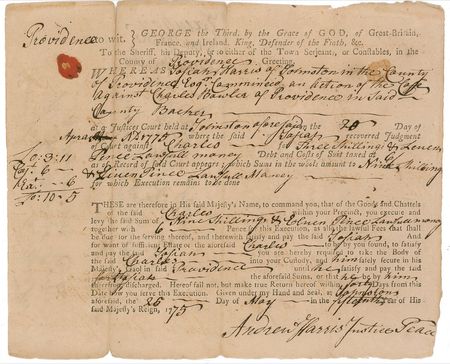 Providence to wit. GEORGE the Third, by the Grace of GOD, of Great-Britain,
France, and Ireland, King, Defender of the Faith, &c.
To the Sheriff, his Deputy, or to either of the Town Serjeant, or Constables, in the
County of Providence Greeting.
WHEREAS Josiah Harris of Johnston in the County
of Providence Esq. Commenced an action of the Case
against Charles Bowler of Providence in Said
County Backer
at a Justices Court held at Johnston aforesaid the 25 Day of
April AD 1775 where the said Josiah recovered Judgment
of Court against Charles for Three Shillings & Eleven
Pence Lawfull money Debt and Costs of Suit taxed at
as of Record of said Court appears, which Sums in the whole amount to Nine Shillings
& Eleven Pence Lawfull Money
for which Execution remains to be done
0: 3: 11
6
6
10 5
THESE are therefore in his said Majesty's Name, to command you, that of the Goods and Chattels
of the said Charles within your Precinct, you execute and
levy the said Sum of Nine Shillings & Eleven Pence Lawfull money
together with 6 Pence for this Execution, as also the lawful Fees that shall
be due for the serving thereof, and therewith satisfy and pay the said Josiah And
for want of sufficient Estate of the aforesaid Charles to by you found, to satisfy
and pay the said Josiah you are hereby required to take the Body
of the said Charles into your Custody, and him safely secure in his
Majesty's Gaol in said Providence until he satisfy and pay the
said Josiah the said Sum, or that he be by him
otherwise discharged. Hereof fail not, but make true Return hereof within forty Days from this
Date how you serve this Execution. Given under my Hand and Seal, at Johnston
aforesaid, the 25 Day of May in the Fifteenth Year of His
said Majesty's Reign, 1775
Andrew Harris Justice Peace